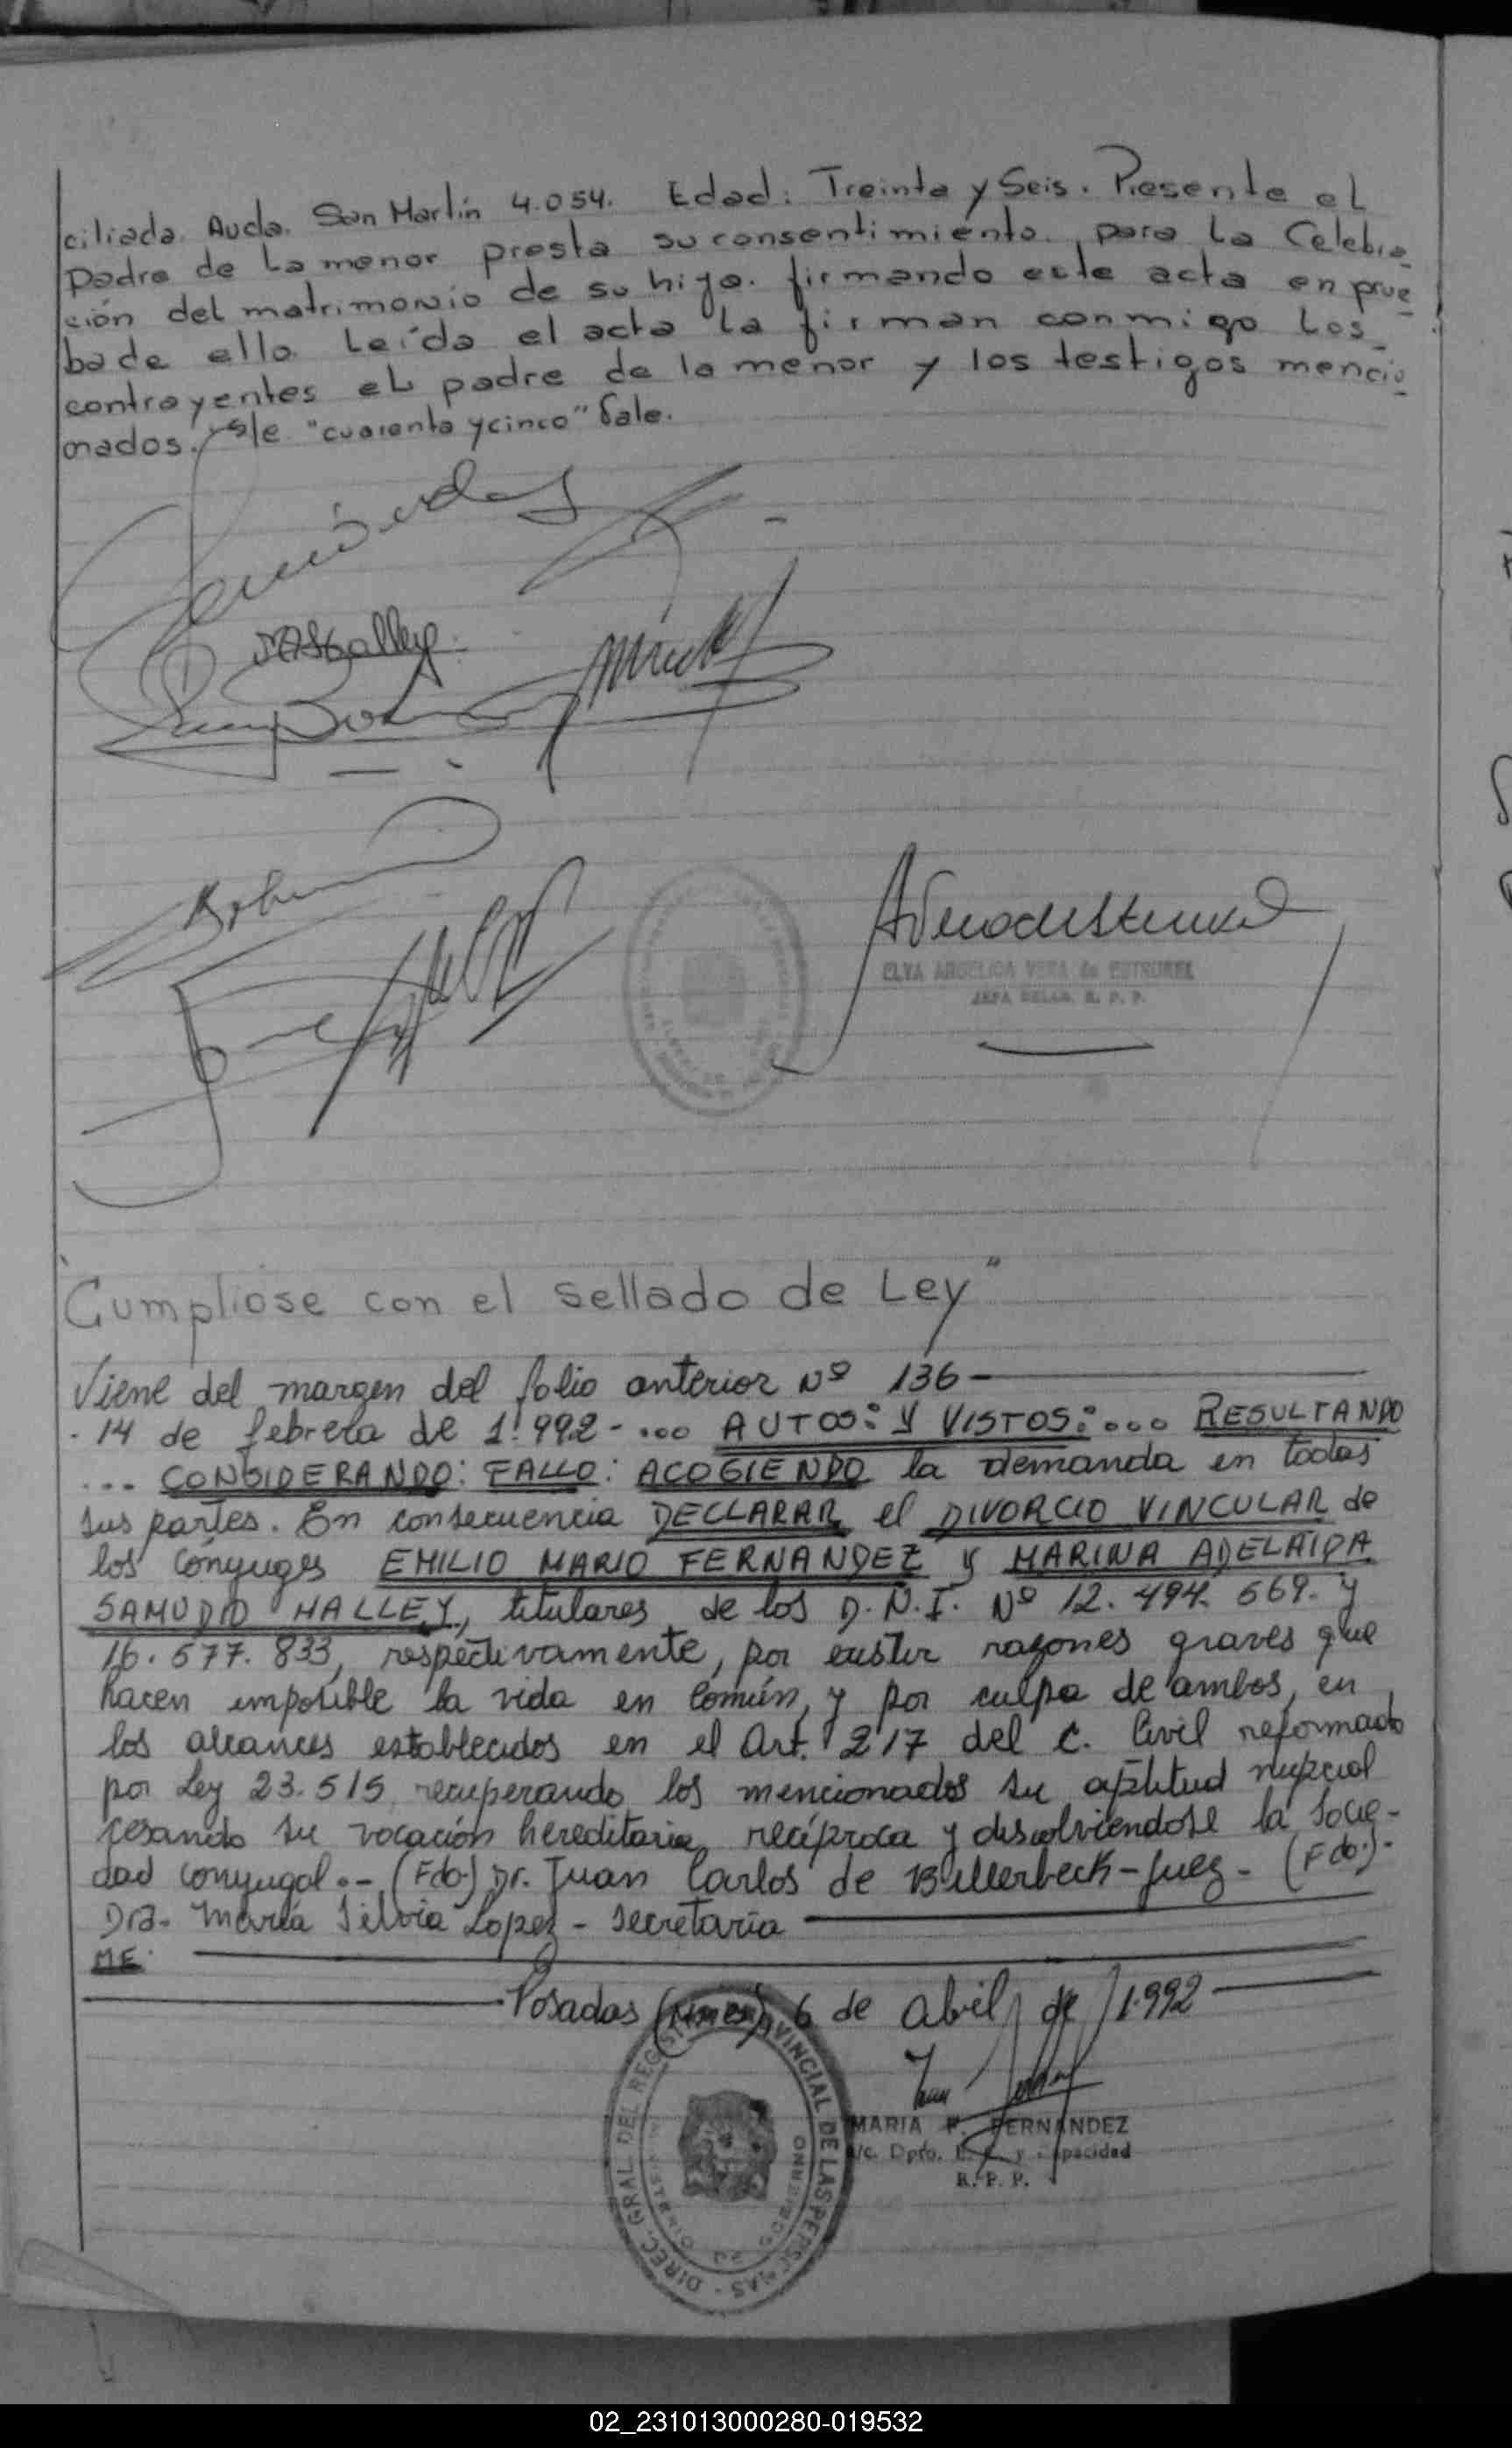 ciliada. Avda. San Martín 4.054. Edad: Treinta y Seis. Presente el
Padre de la menor presta su consentimiento. para la Celebra_
ción del matrimonio de su hija. firmando este acta en prue_
ba de ello. Leída el acta la firman conmigo los_
contrayentes el padre de la menor y los testigos mencio_
nados. s/e "cuarenta y cinco" Vale.
"Cumpliose con el sellado de Ley"
Viene del margen del folio anterior Nº 136-
- 14 de febrero de 1.992 - ... AUTOS: Y VISTOS: ... RESULTANDO
... CONSIDERANDO: FALLO: ACOGIENDO la demanda en todas
sus partes. En consecuencia DECLARAR el DIVORCIO VINCULAR de
los cónyuges EMILIO MARIO FERNANDEZ y MARINA ADELAIDA
SAMUDIO HALLEY, titulares de los D.N.I. Nº 12.494.569. y
16.577.833, respectivamente, por existir razones graves que
hacen imposible la vida en común, y por culpa de ambos, en
los alcances establecidos en el Art. 217 del C. Civil reformado
por Ley 23.515, recuperando los mencionados su aptitud nupcial
cesando su vocación hereditaria recíproca y disolviéndose la Socie-
dad conyugal.- (Fdo.) Dr. Juan Carlos de Billerbeck-Juez- (Fdo.)-
Dra. María Silvia Lopez - Secretaria
ME.
Posadas (Mnes), 6 de abril de 1.992
DIREC. GRAL. DEL REGISTRO PROVINCIAL DE LAS PERSONAS
MINISTERIO DE GOBIERNO
MARIA F. FERNANDEZ
a/c. Dpto. y Capacidad
R. P. P.
ELVA ANGELICA VERA de
JEFA R. P. P.
02_231013000280-019532